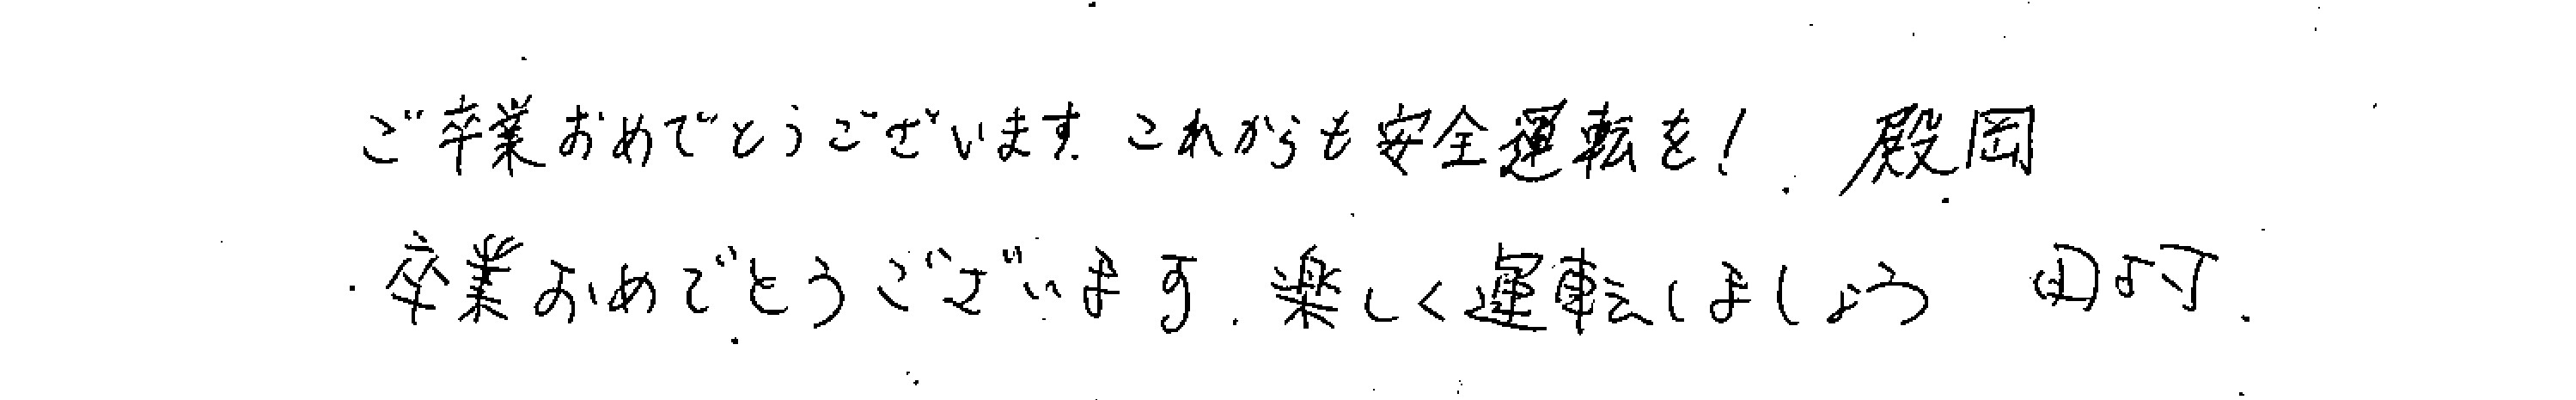 ご卒業おめでとうございます。これからも安全運転を! 殿岡
卒業おめでとうございます。楽しく運転しましょう